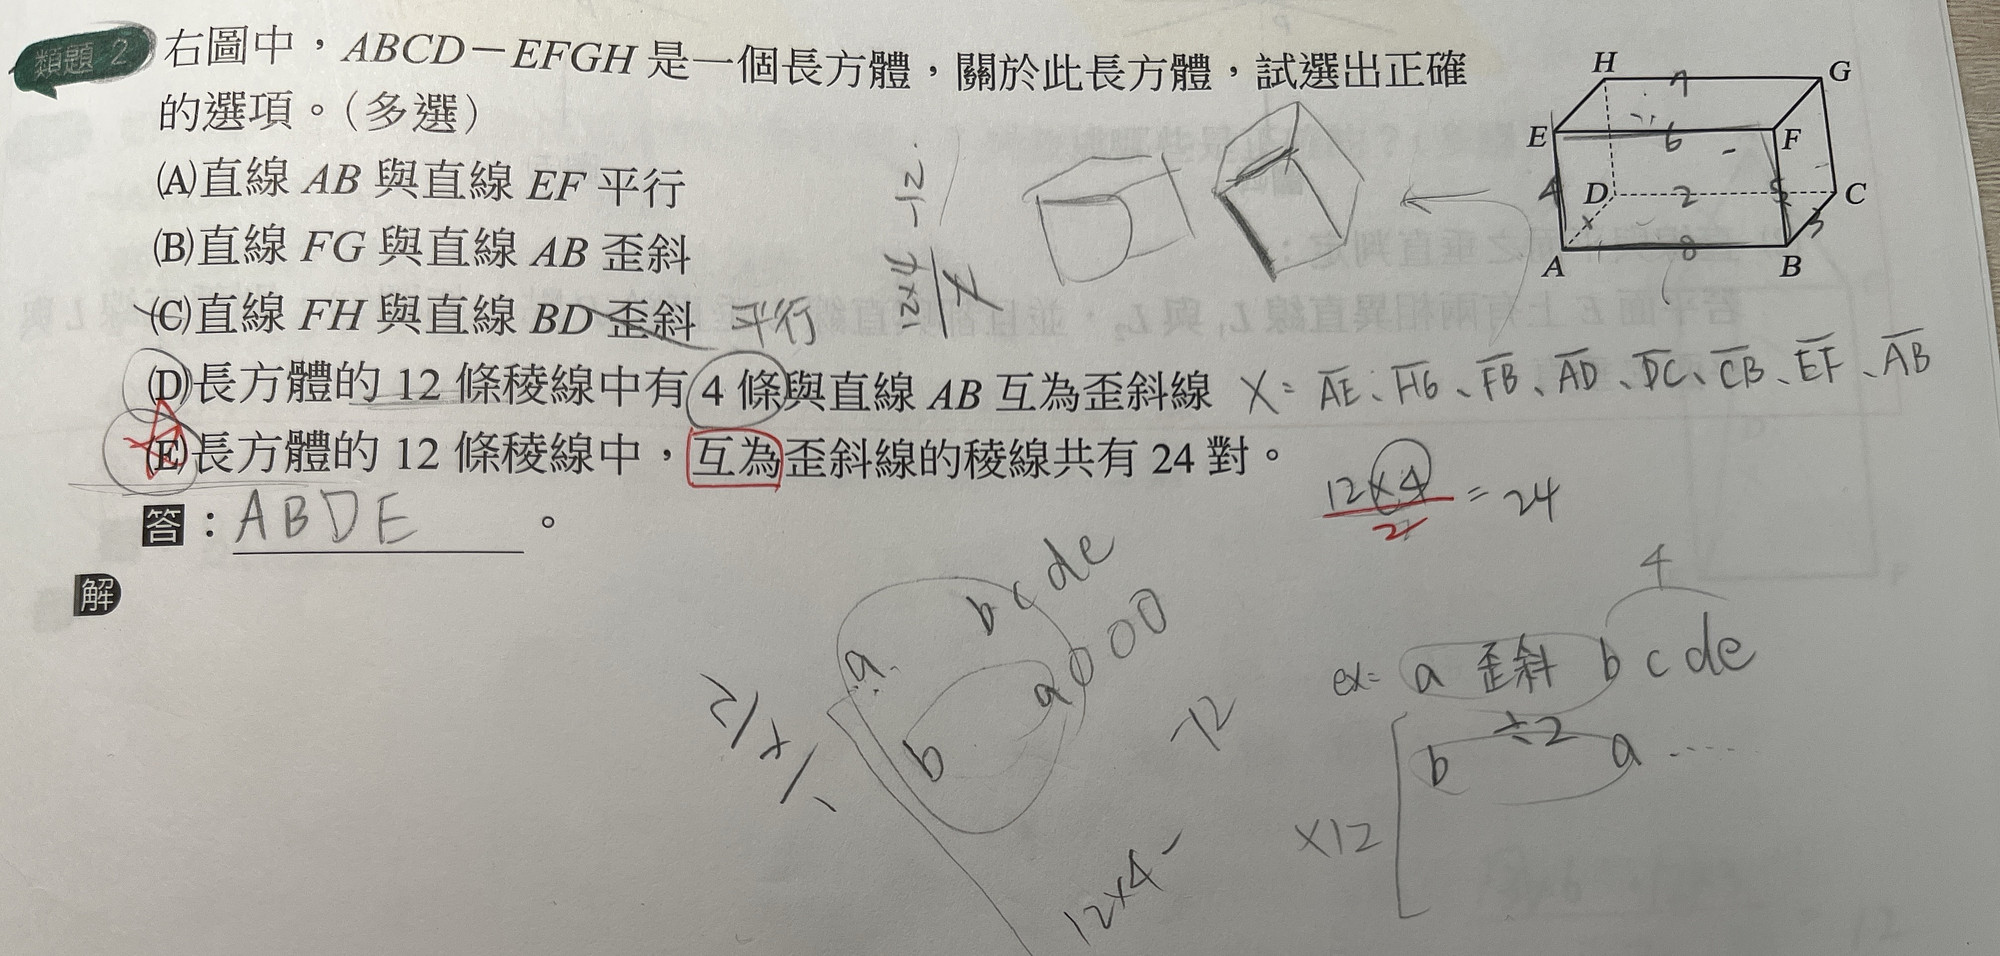 類題 2 右圖中，ABCD－EFGH 是一個長方體，關於此長方體，試選出正確
的選項。（多選）
(A)直線 AB 與直線 EF 平行
(B)直線 FG 與直線 AB 歪斜
(C)直線 FH 與直線 BD 歪斜 平行
(D)長方體的 12 條稜線中有 4 條與直線 AB 互為歪斜線 X= AE、HG、FB、AD、DC、CB、EF、AB
(E)長方體的 12 條稜線中，互為歪斜線的稜線共有 24 對。
12×4
2
= 24
答：ABDE。
解
H
G
E
F
D
C
A
B
7
6
4
2
5
3
8
12×4
-12
a
b c de
b
a 000
-12
12×4-
4
ex= a 歪斜 b c de
÷2
b a ....
×12